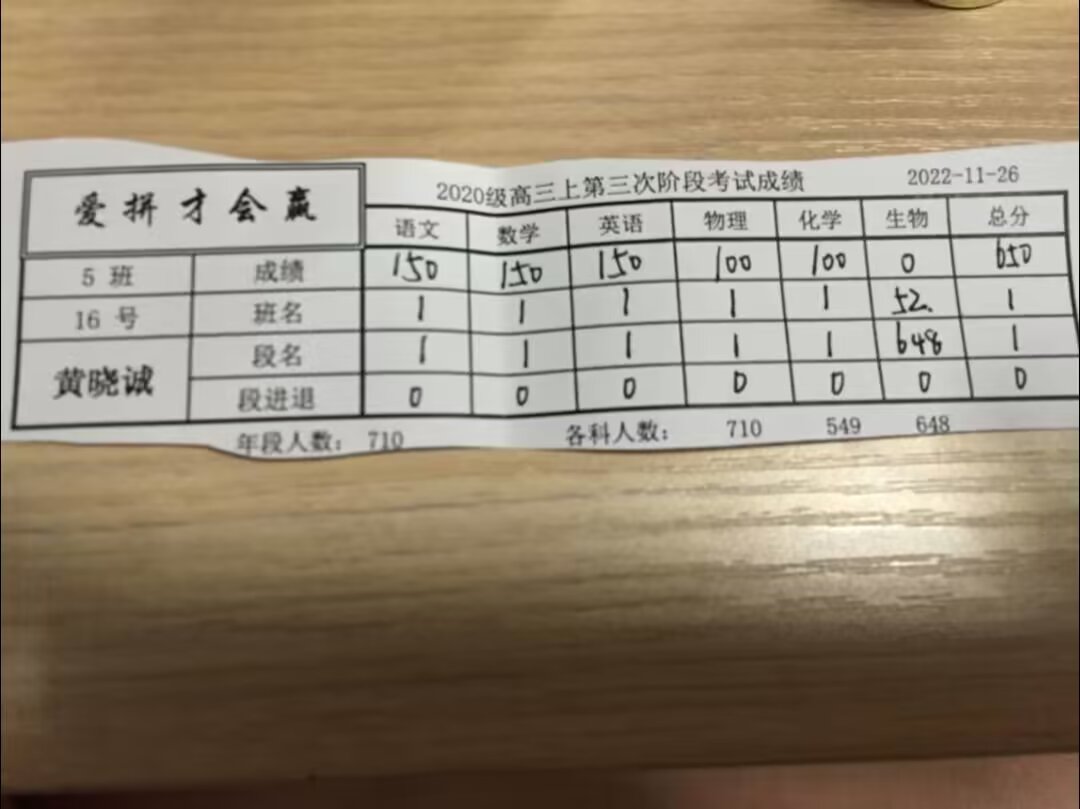 爱拼才会赢 2020级高三上第三次阶段考试成绩 2022-11-26
语文 数学 英语 物理 化学 生物 总分
5班 成绩 150 150 150 100 100 0 650
16号 班名 1 1 1 1 1 52. 1
黄晓诚 段名 1 1 1 1 1 648 1
段进退 0 0 0 0 0 0 0
年段人数: 710 各科人数: 710 549 648